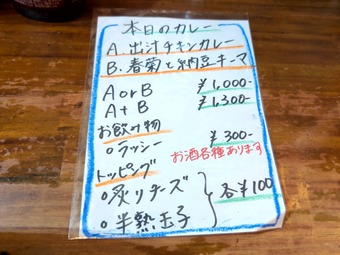 本日のカレー
A. 出汁チキンカレー
B. 春菊と納豆キーマ
A or B ¥1,000-
A + B ¥1,300-
お飲み物
○ラッシー ¥300-
お酒各種あります
トッピング
○炙りチーズ
○半熟玉子
各¥100